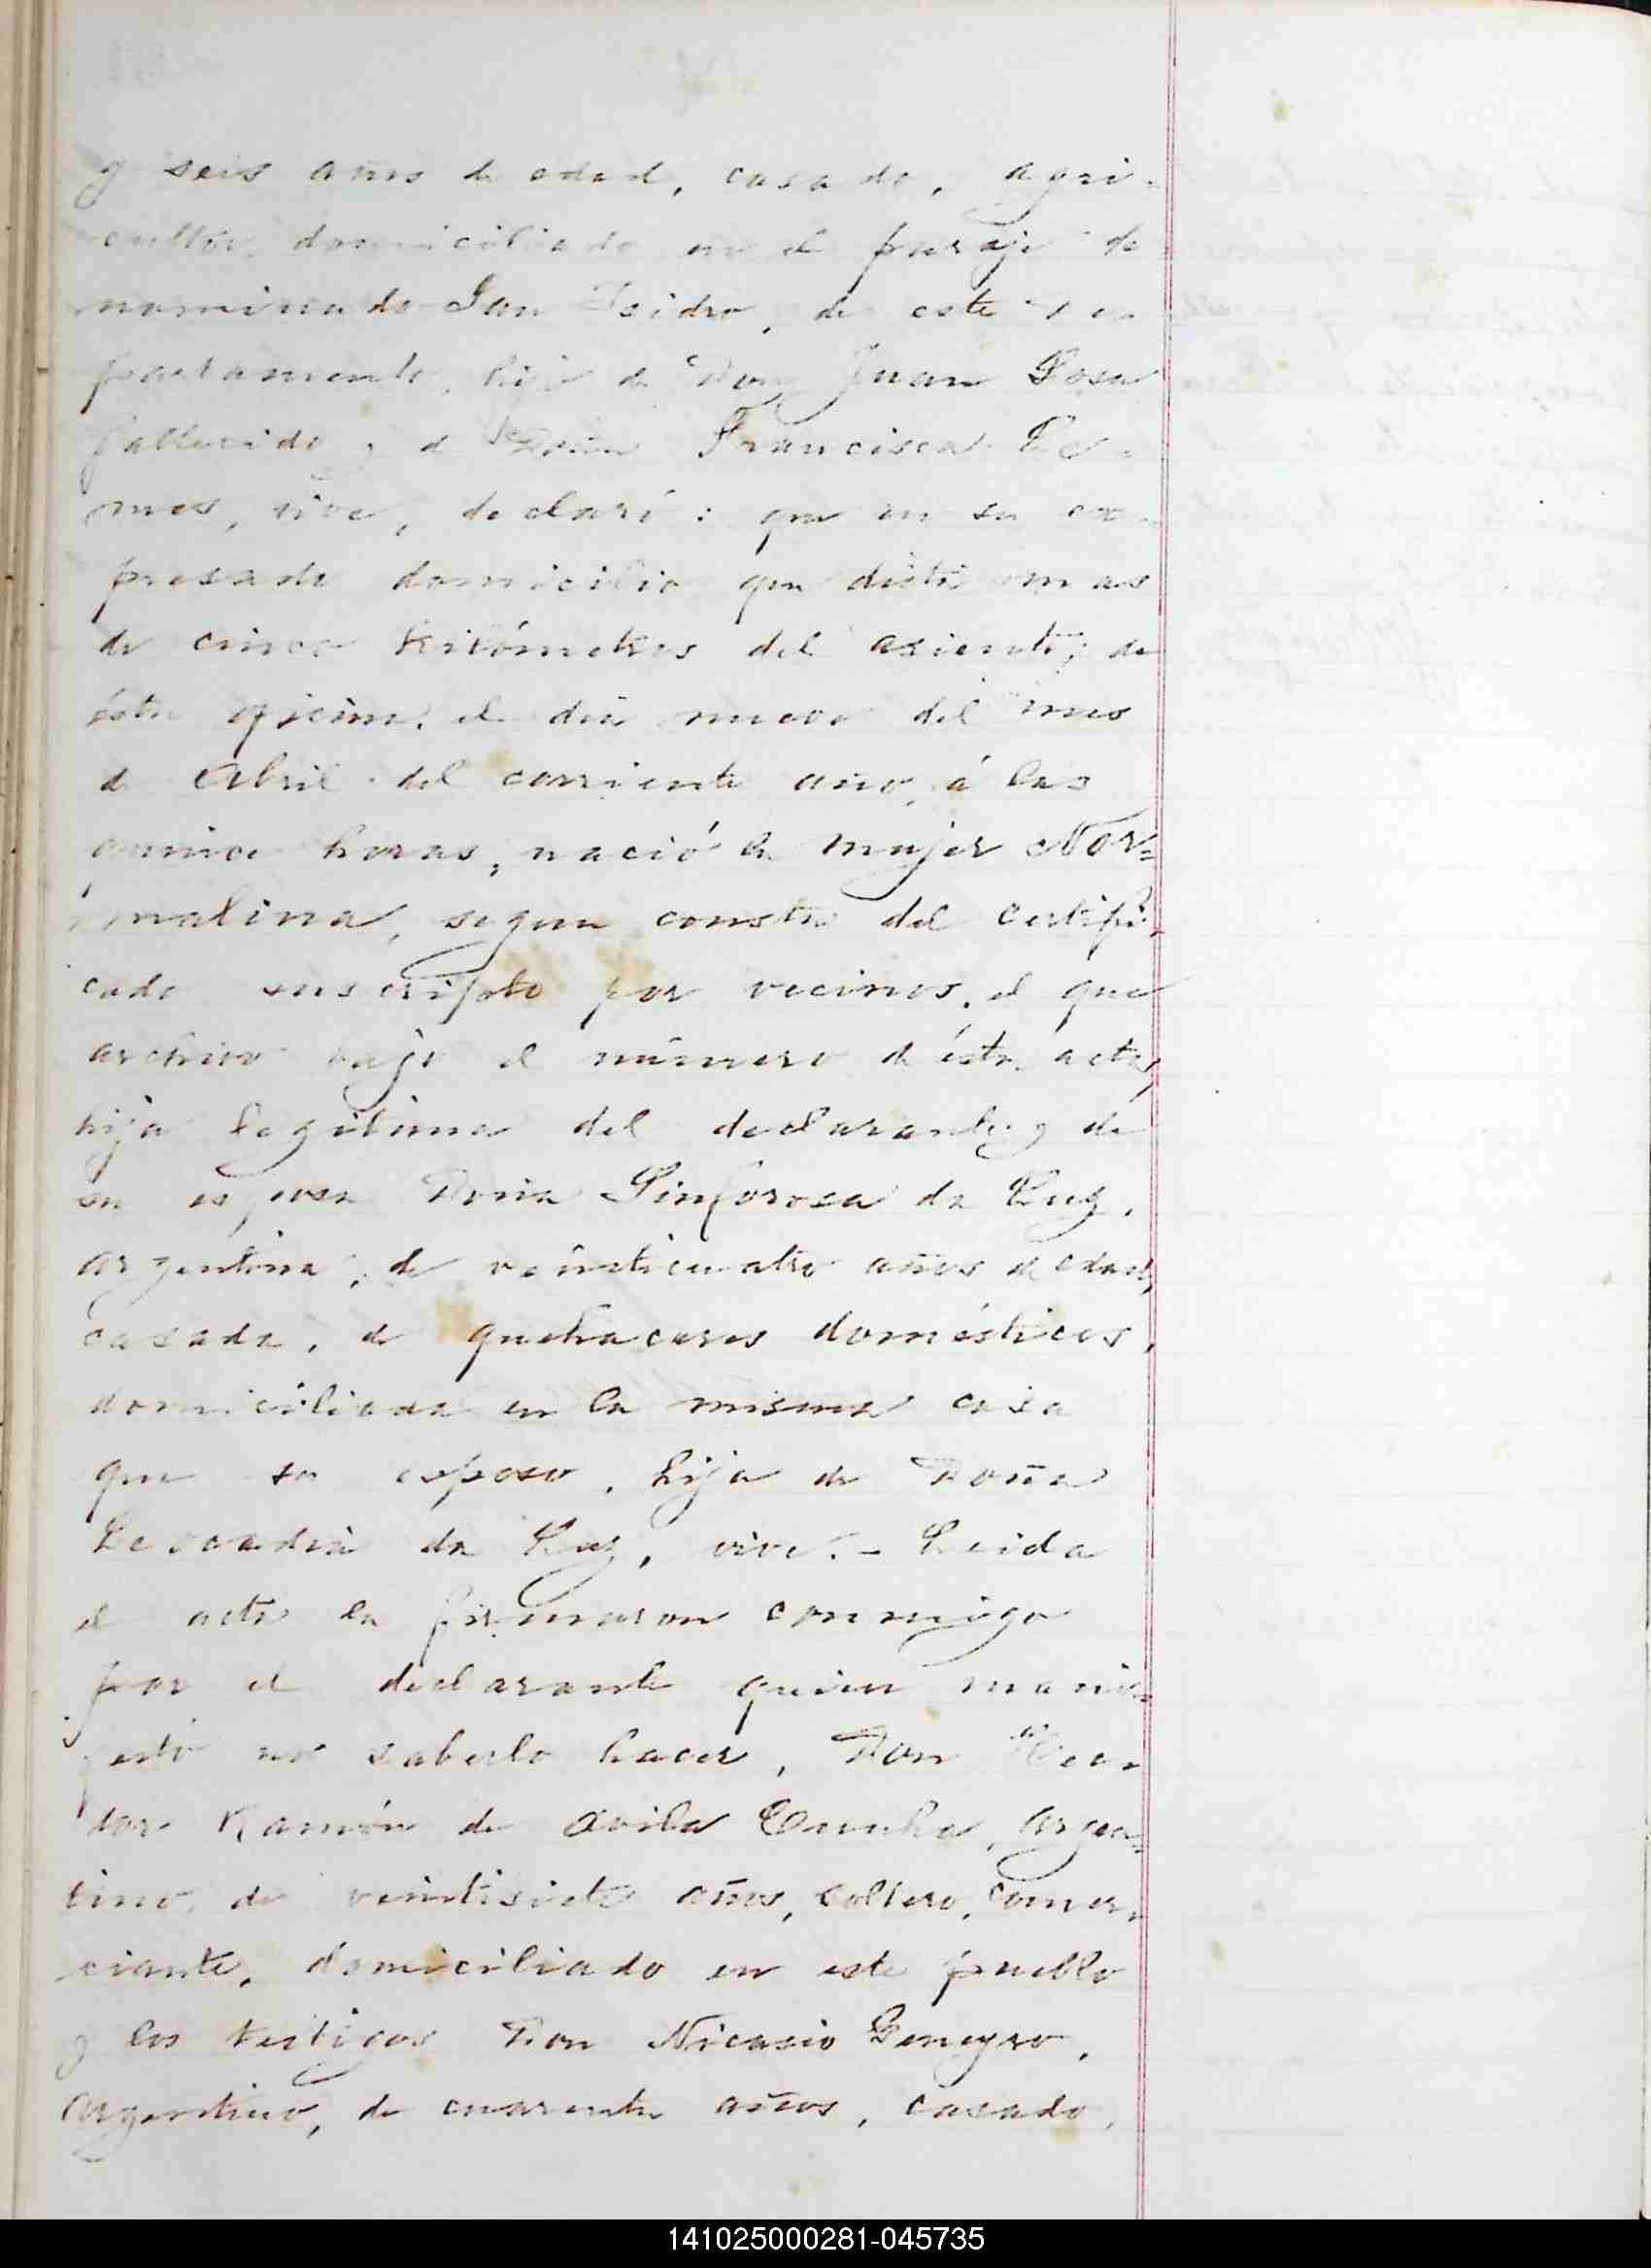 y seis años de edad, casado, agri-
cultor, domiciliado en el paraje de
nominado San Isidro, de este De-
partamento, hijo de Don Juan Sosa
fallecido y de Doña Francisca Le-
mes, vive, declaró: que en su ex-
presado domicilio que dista mas
de cinco kilómetros del asiento de
ésta oficina, el dia nueve del mes
de Abril del corriente año, á las
quince horas, nació la mujer Nor=
malina, segun consta del certifi-
cado suscripto por vecinos, el que
archivo bajo el número de ésta acta,
hija legitima del declarante y de
su esposa Doña Sinforosa da Luz,
argentina, de veinticuatro años de edad,
casada, de quehaceres domésticos,
domiciliada en la misma casa
que su esposo, hija de Doña
Leocadia da Luz, vive.- Leida
el acta la firmaron conmigo
por el declarante quien mani-
festó no saberlo hacer, Don
Ramón de Avila Cunha, argen=
tino, de veintisiete años, soltero, comer-
ciante, domiciliado en este pueblo
y los testigos Don Nicasio
argentino, de cuarenta años, casado,
141025000281-045735